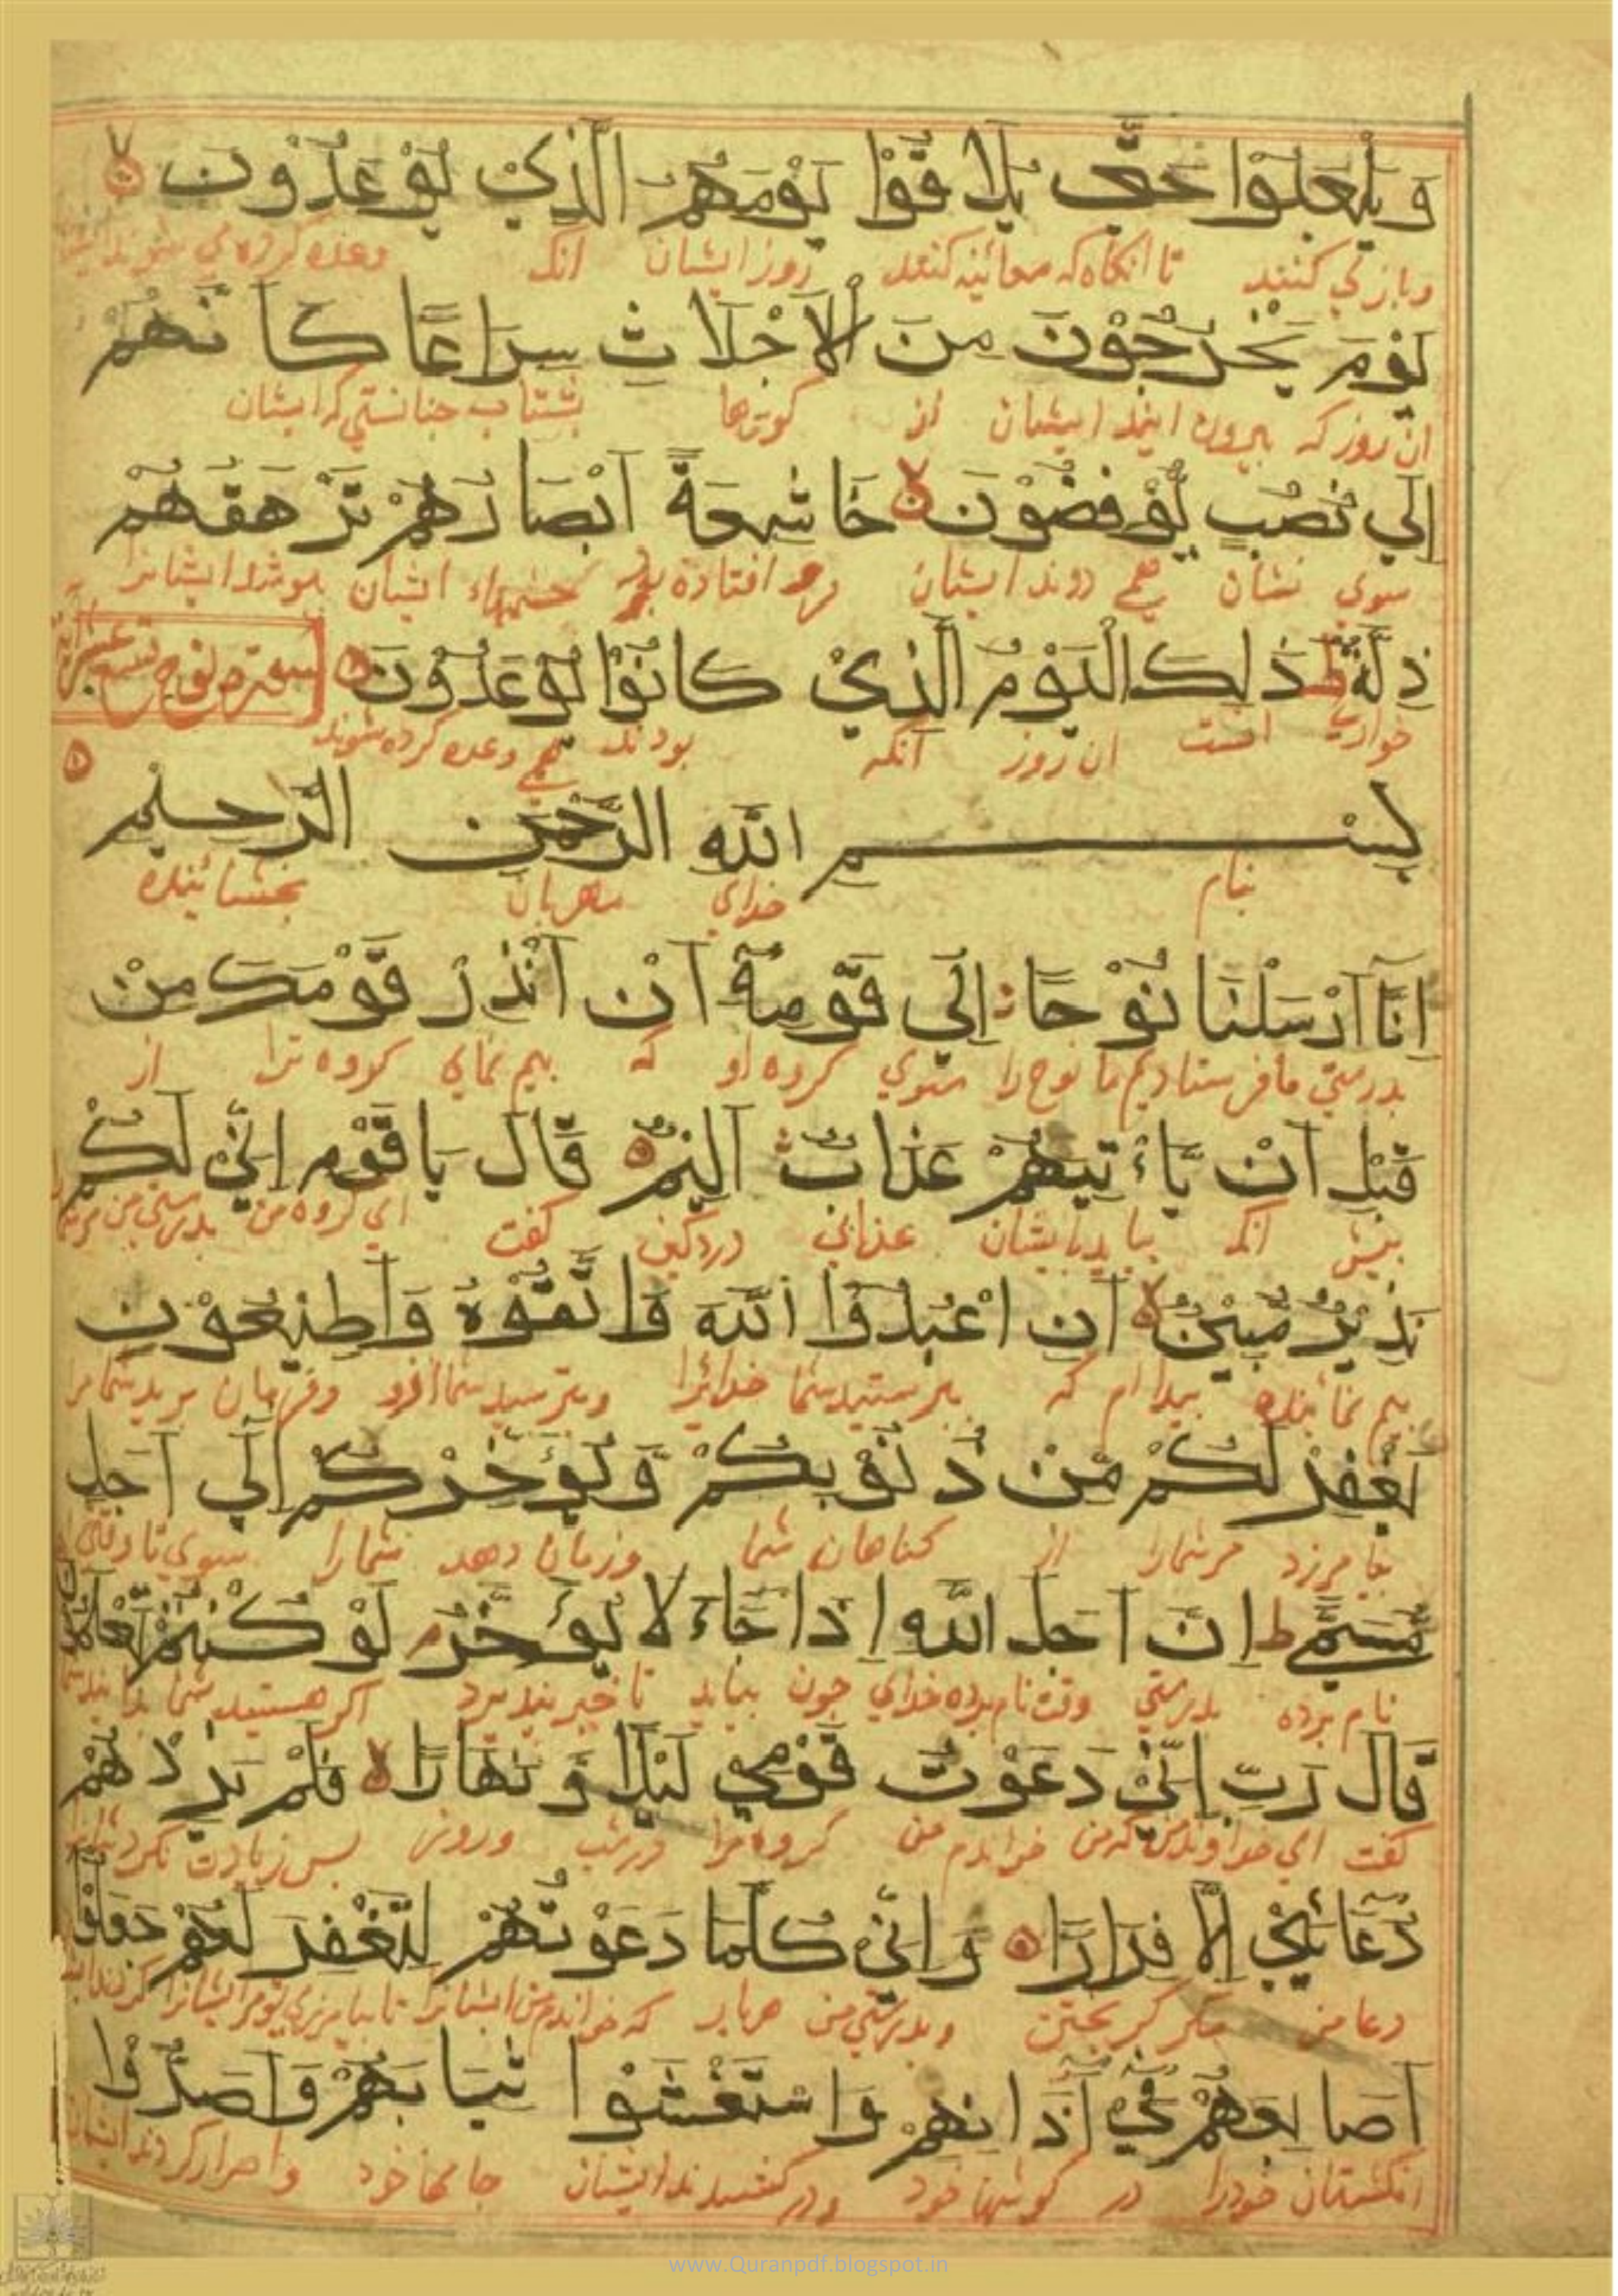 وَيَلْعَبُوا حَتَّى يُلَاقُوا يَوْمَهُمُ الَّذِي يُوعَدُونَ
وبازي كنند تا انكاه كه معائنه كنند روز ايشان انك وعده كرده مي شوند
يَوْمَ يَخْرُجُونَ مِنَ الْاَجْدَاثِ سِرَاعًا كَاَنَّهُمْ
ان روز كه بيرون ايند ايشان از كورها بشتاب چنانستي كه ايشان
اِلَى نُصُبٍ يُوفِضُونَ خَاشِعَةً اَبْصَارُهُمْ تَرْهَقُهُمْ
سوي نشان همي دوند ايشان افتاده بود چشمهاء ايشان بپوشد ايشانرا
ذِلَّةٌ ط ذَلِكَ الْيَوْمُ الَّذِي كَانُوا يُوعَدُونَ سورة نوح تسع
خواري انست ان روز انكه بودند همي وعده كرده شوند
بِسْمِ اللّه الرَّحْمنِ الرَّحِيمِ
بنام خداي مهربان بخشائنده
اِنَّا اَرْسَلْنَا نُوحًا اِلَى قَوْمِهِ اَنْ اَنْذِرْ قَوْمَكَ مِنْ
بدرستي ما فرستاديم ما نوح را سوي كروه او كه بيم نماي كروه ترا از
قَبْلِ اَنْ يَاْتِيَهُمْ عَذَابٌ اَلِيمٌ قَالَ يَا قَوْمِ اِنِّي لَكُمْ
پيش انكه بيايد بايشان عذابي دردكين كفت اي كروه من بدرستي من
نَذِيرٌ مُبِينٌ اَنِ اعْبُدُوا اللّهَ وَاتَّقُوهُ وَاَطِيعُونِ
بيم نمائنده بيدا ام كه بپرستيد شما خدايرا وبترسيد شما ازو وفرمان بريد شما مر
يَغْفِرْ لَكُمْ مِنْ ذُنُوبِكُمْ وَيُؤَخِّرْكُمْ اِلَى اَجَلٍ
بيامرزد مر شمارا از كناهان شما وزمان دهد شمارا سوي تا وقتي
مُسَمًّى ط اِنَّ اَجَلَ اللّهِ اِذَا جَاءَ لَا يُؤَخَّرُ م لَوْ كُنْتُمْ تَعْلَمُونَ
نام برده بدرستي وقت نام برده خداي چون بيايد تاخير نپذيرد اكر هستيد شما
قَالَ رَبِّ اِنِّي دَعَوْتُ قَوْمِي لَيْلًا وَنَهَارًا فَلَمْ يَزِدْهُمْ
كفت اي خداوند من كه من خواندم من كروه مرا در شب وروز پس زيادت نكرد
دُعَائِي اِلَّا فِرَارًا وَاِنِّي كُلَّمَا دَعَوْتُهُمْ لِتَغْفِرَ لَهُمْ جَعَلُوا
دعا من مكر كريختن وبدرستي من هربار كه خواندم من ايشانرا تا بيامرزي تو مر ايشانرا
اَصَابِعَهُمْ فِي اذَانِهِمْ وَاسْتَغْشَوْا ثِيَابَهُمْ وَاَصَرُّوا
انكشتان خودرا در كوشها خود ودر كشيدند ايشان جامها خود واصرار كردند ايشان
www.Quranpdf.blogspot.in